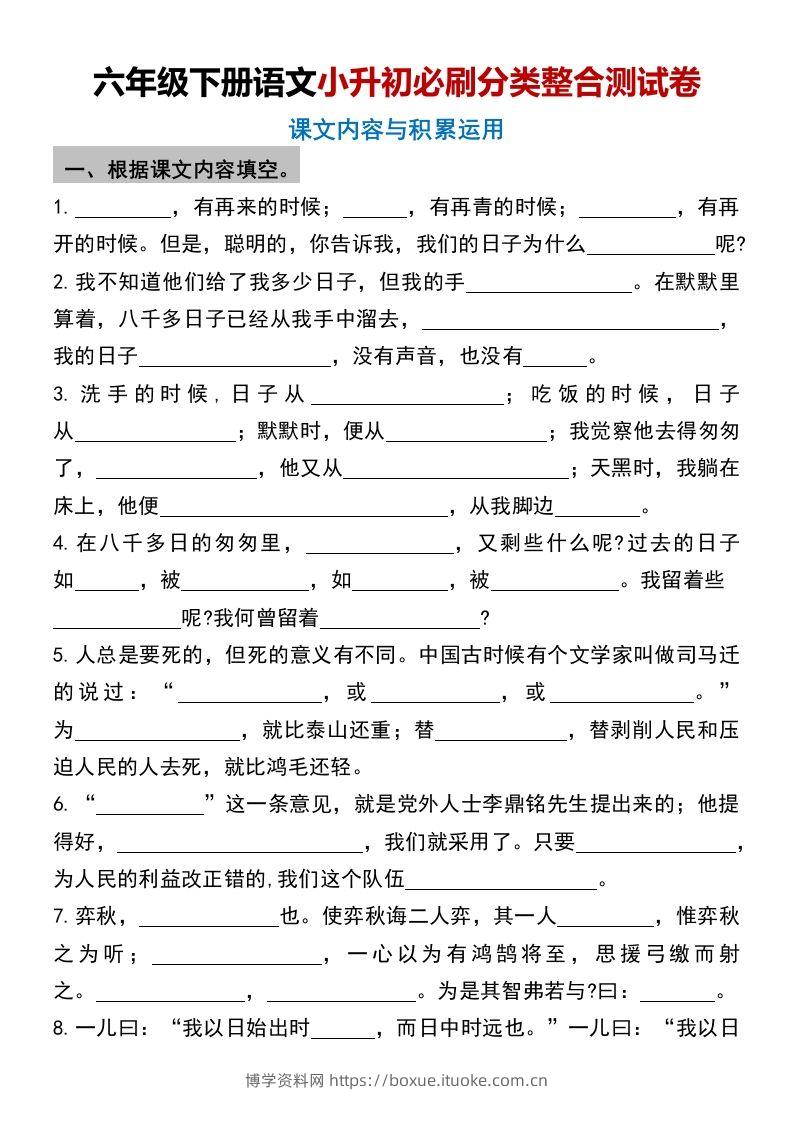 六年级下册语文小升初必刷分类整合测试卷
课文内容与积累运用
一、根据课文内容填空。
1. ________，有再来的时候；______，有再青的时候；________，有再
开的时候。但是，聪明的，你告诉我，我们的日子为什么____________呢?
2. 我不知道他们给了我多少日子，但我的手________________。在默默里
算着，八千多日子已经从我手中溜去，____________________________，
我的日子__________________，没有声音，也没有______。
3. 洗手的时候,日子从__________________；吃饭的时候，日子
从________________；默默时，便从________________；我觉察他去得匆匆
了，________________，他又从______________________；天黑时，我躺在
床上，他便____________________________，从我脚边________。
4. 在八千多日的匆匆里，______________，又剩些什么呢?过去的日子
如______，被____________，如_________，被____________。我留着些
____________呢?我何曾留着________________?
5. 人总是要死的，但死的意义有不同。中国古时候有个文学家叫做司马迁
的说过：“______________，或____________，或______________。”
为________________，就比泰山还重；替____________，替剥削人民和压
迫人民的人去死，就比鸿毛还轻。
6. “__________”这一条意见，就是党外人士李鼎铭先生提出来的；他提
得好，________________________，我们就采用了。只要________________，
为人民的利益改正错的,我们这个队伍__________________。
7. 弈秋，_____________也。使弈秋诲二人弈，其一人_________，惟弈秋
之为听；________________，一心以为有鸿鹄将至，思援弓缴而射
之。______________，______________。为是其智弗若与?曰：_______。
8. 一儿曰：“我以日始出时______，而日中时远也。”一儿曰：“我以日
博学资料网 https://boxue.ituoke.com.cn